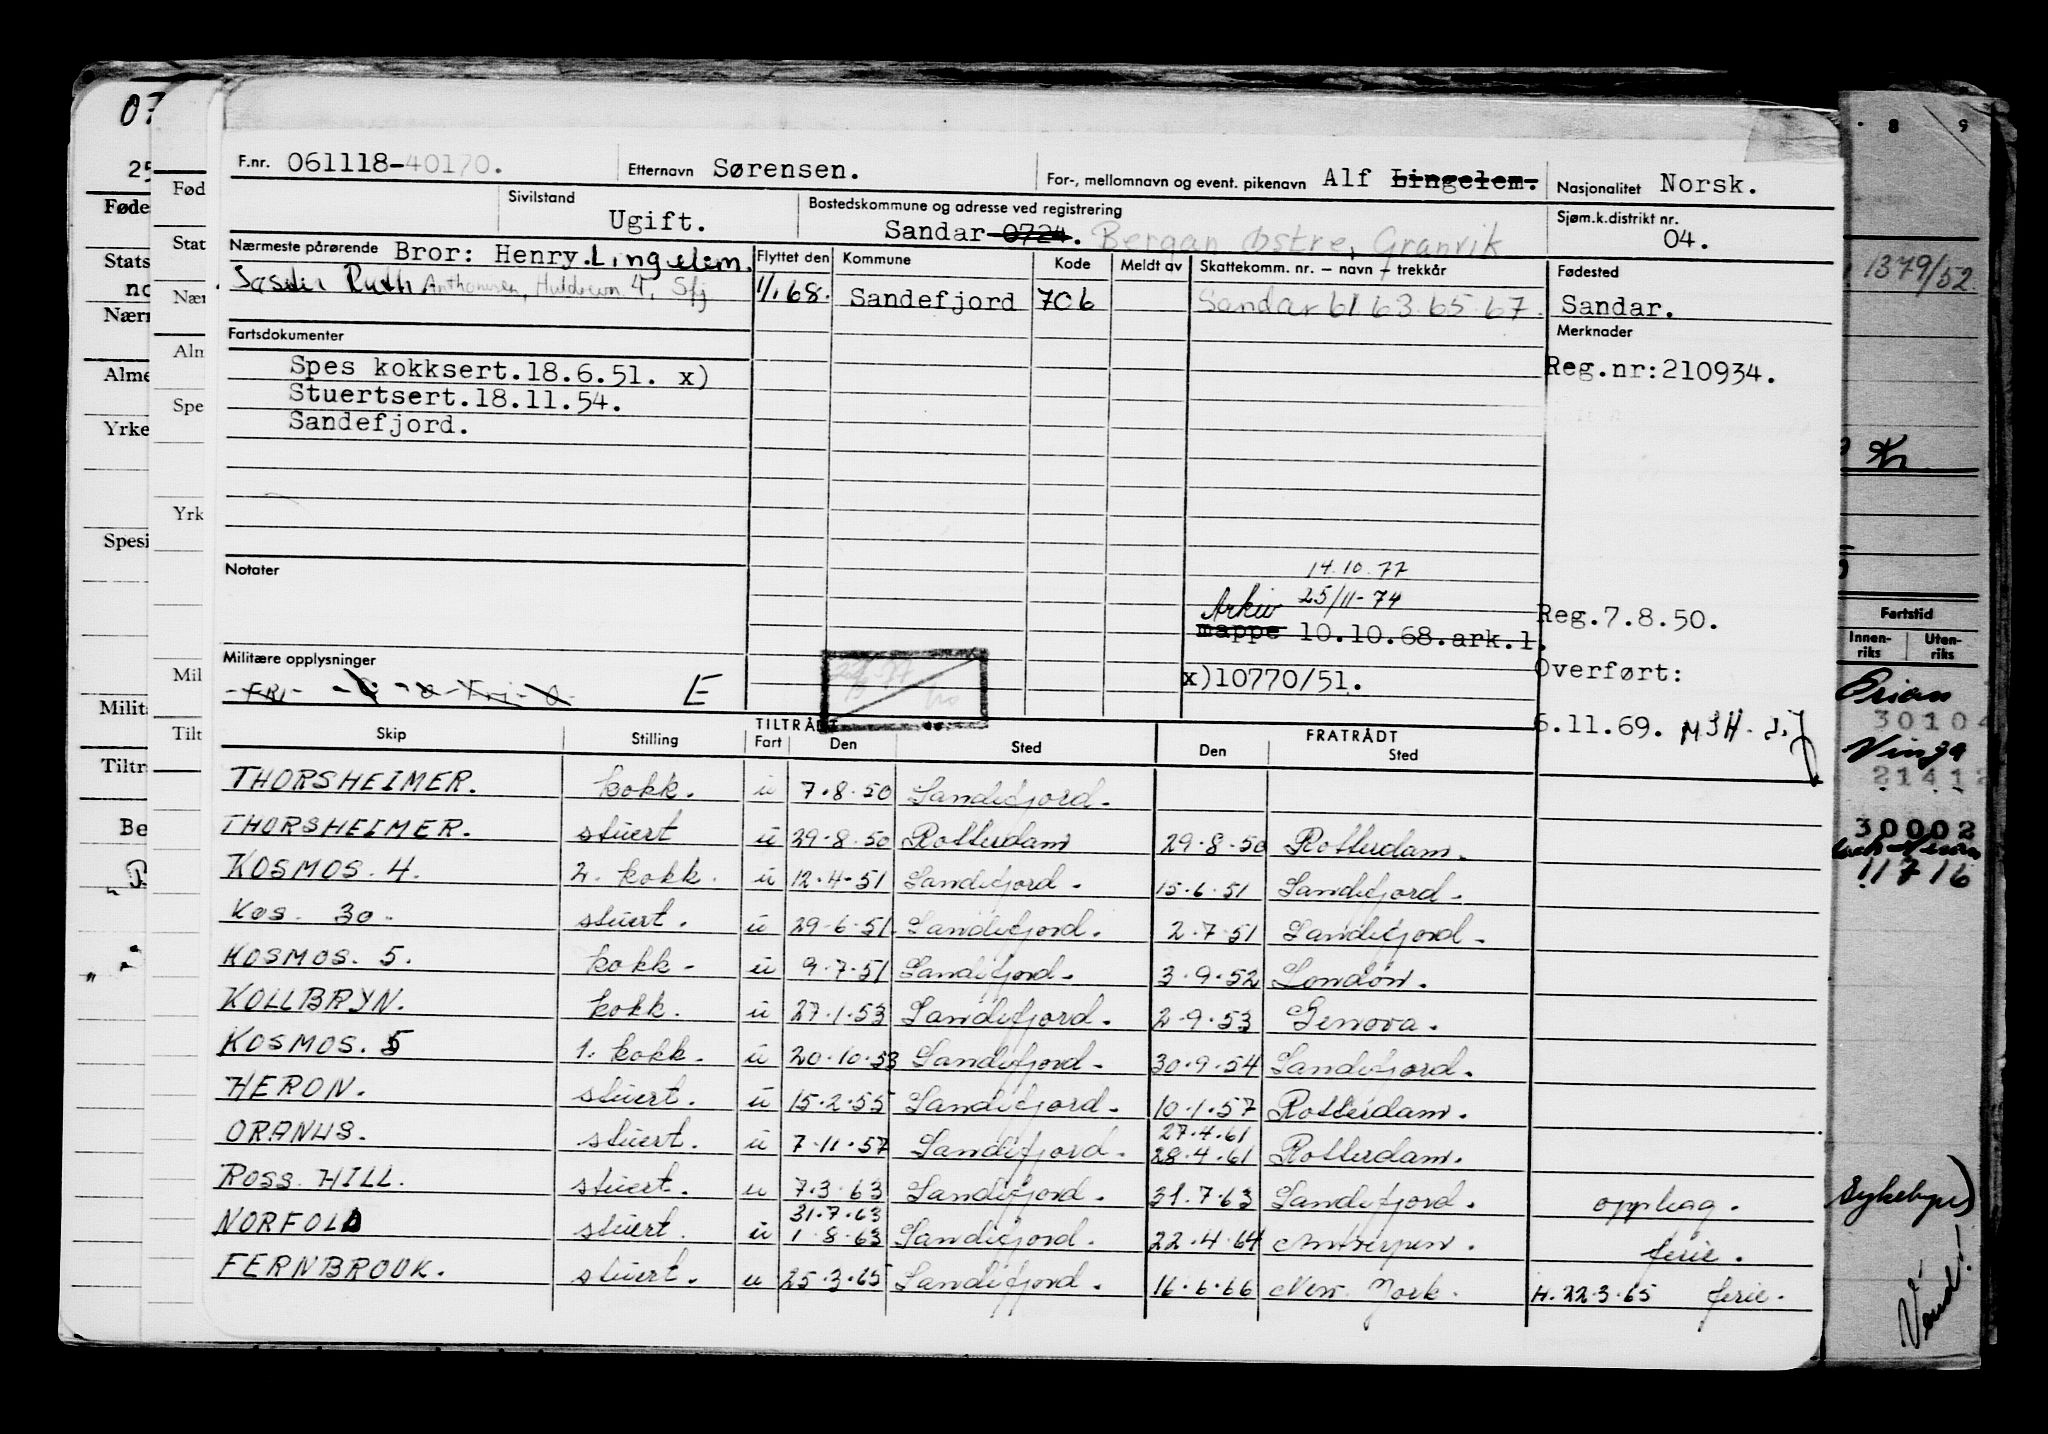 F.nr. 061118-40170. Etternavn Sørensen. For-, mellomnavn og event. pikenavn Alf Lingelem. Nasjonalitet Norsk.
Sivilstand Ugift. Bostedskommune og adresse ved registrering Sandar 0724. Bergan Østre, Granvik Sjøm.k.distrikt nr. 04.
Nærmeste pårørende Bror: Henry.Lingelem. Flyttet den Kommune Kode Meldt av Skattekomm. nr. – navn – trekkår Fødested
Søster Ruth Anthonisen, Huldrevn. 4, Sfj 1/1 68. Sandefjord 706 Sandar 61 63. 65. 67. Sandar.
Fartsdokumenter Merknader
Spes kokksert.18.6.51. x) Reg.nr:210934.
Stuertsert.18.11.54.
Sandefjord.
Notater 14.10.77
Arkiv 25/11-74
mappe 10.10.68.ark.1. Reg.7.8.50.
Militære opplysninger x)10770/51. Overført:
E
6.11.69.
TILTRÅDT FRATRÅDT
Skip Stilling Fart Den Sted Den Sted
THORSHEIMER. kokk. u 7.8.50 Sandefjord.
THORSHEIMER. stuert u 29.8.50 Rotterdam 29.8.50 Rotterdam.
KOSMOS. 4. 2. kokk. u 12.4.51 Sandefjord. 15.6.51 Sandefjord.
KOS. 30. stuert. u 29.6.51. Sandefjord. 2.7.51 Sandefjord.
KOSMOS. 5. kokk. u 9.7.51 Sandefjord. 3.9.52 London.
KOLLBRYN. kokk. u 27.1.53 Sandefjord. 2.9.53 Genova.
KOSMOS. 5 1. kokk. u 20.10.53 Sandefjord. 30.9.54 Sandefjord.
HERON. stuert. u 15.2.55 Sandefjord. 10.1.57 Rotterdam.
ORANUS. stuert. u 7.11.57 Sandefjord. 27.4.61 28.4.61 Rotterdam.
ROSS. HILL. stuert. u 7.3.63 Sandefjord. 31.7.63 Sandefjord. opplag.
NORFOLD stuert. u 31.7.63 1.8.63 Sandefjord. 22.4.64 Antwerpen. ferie.
FERNBROOK. stuert. u 25.3.65 Sandefjord. 16.6.66 New. York. H.22.3.65 ferie.
07
25
Føde
Stats
no
Nærn
Alme
Yrke
Spesi
Milita
Tiltr
Be
Fød
Stat
Nær
Aln
Spe
Yrk
Mil
Tilt
8 9
1379/52.
Kr
Fartstid
Innen-riks Uten-riks
Orion
30104
Vinga
21412
30002
11716
Vend!